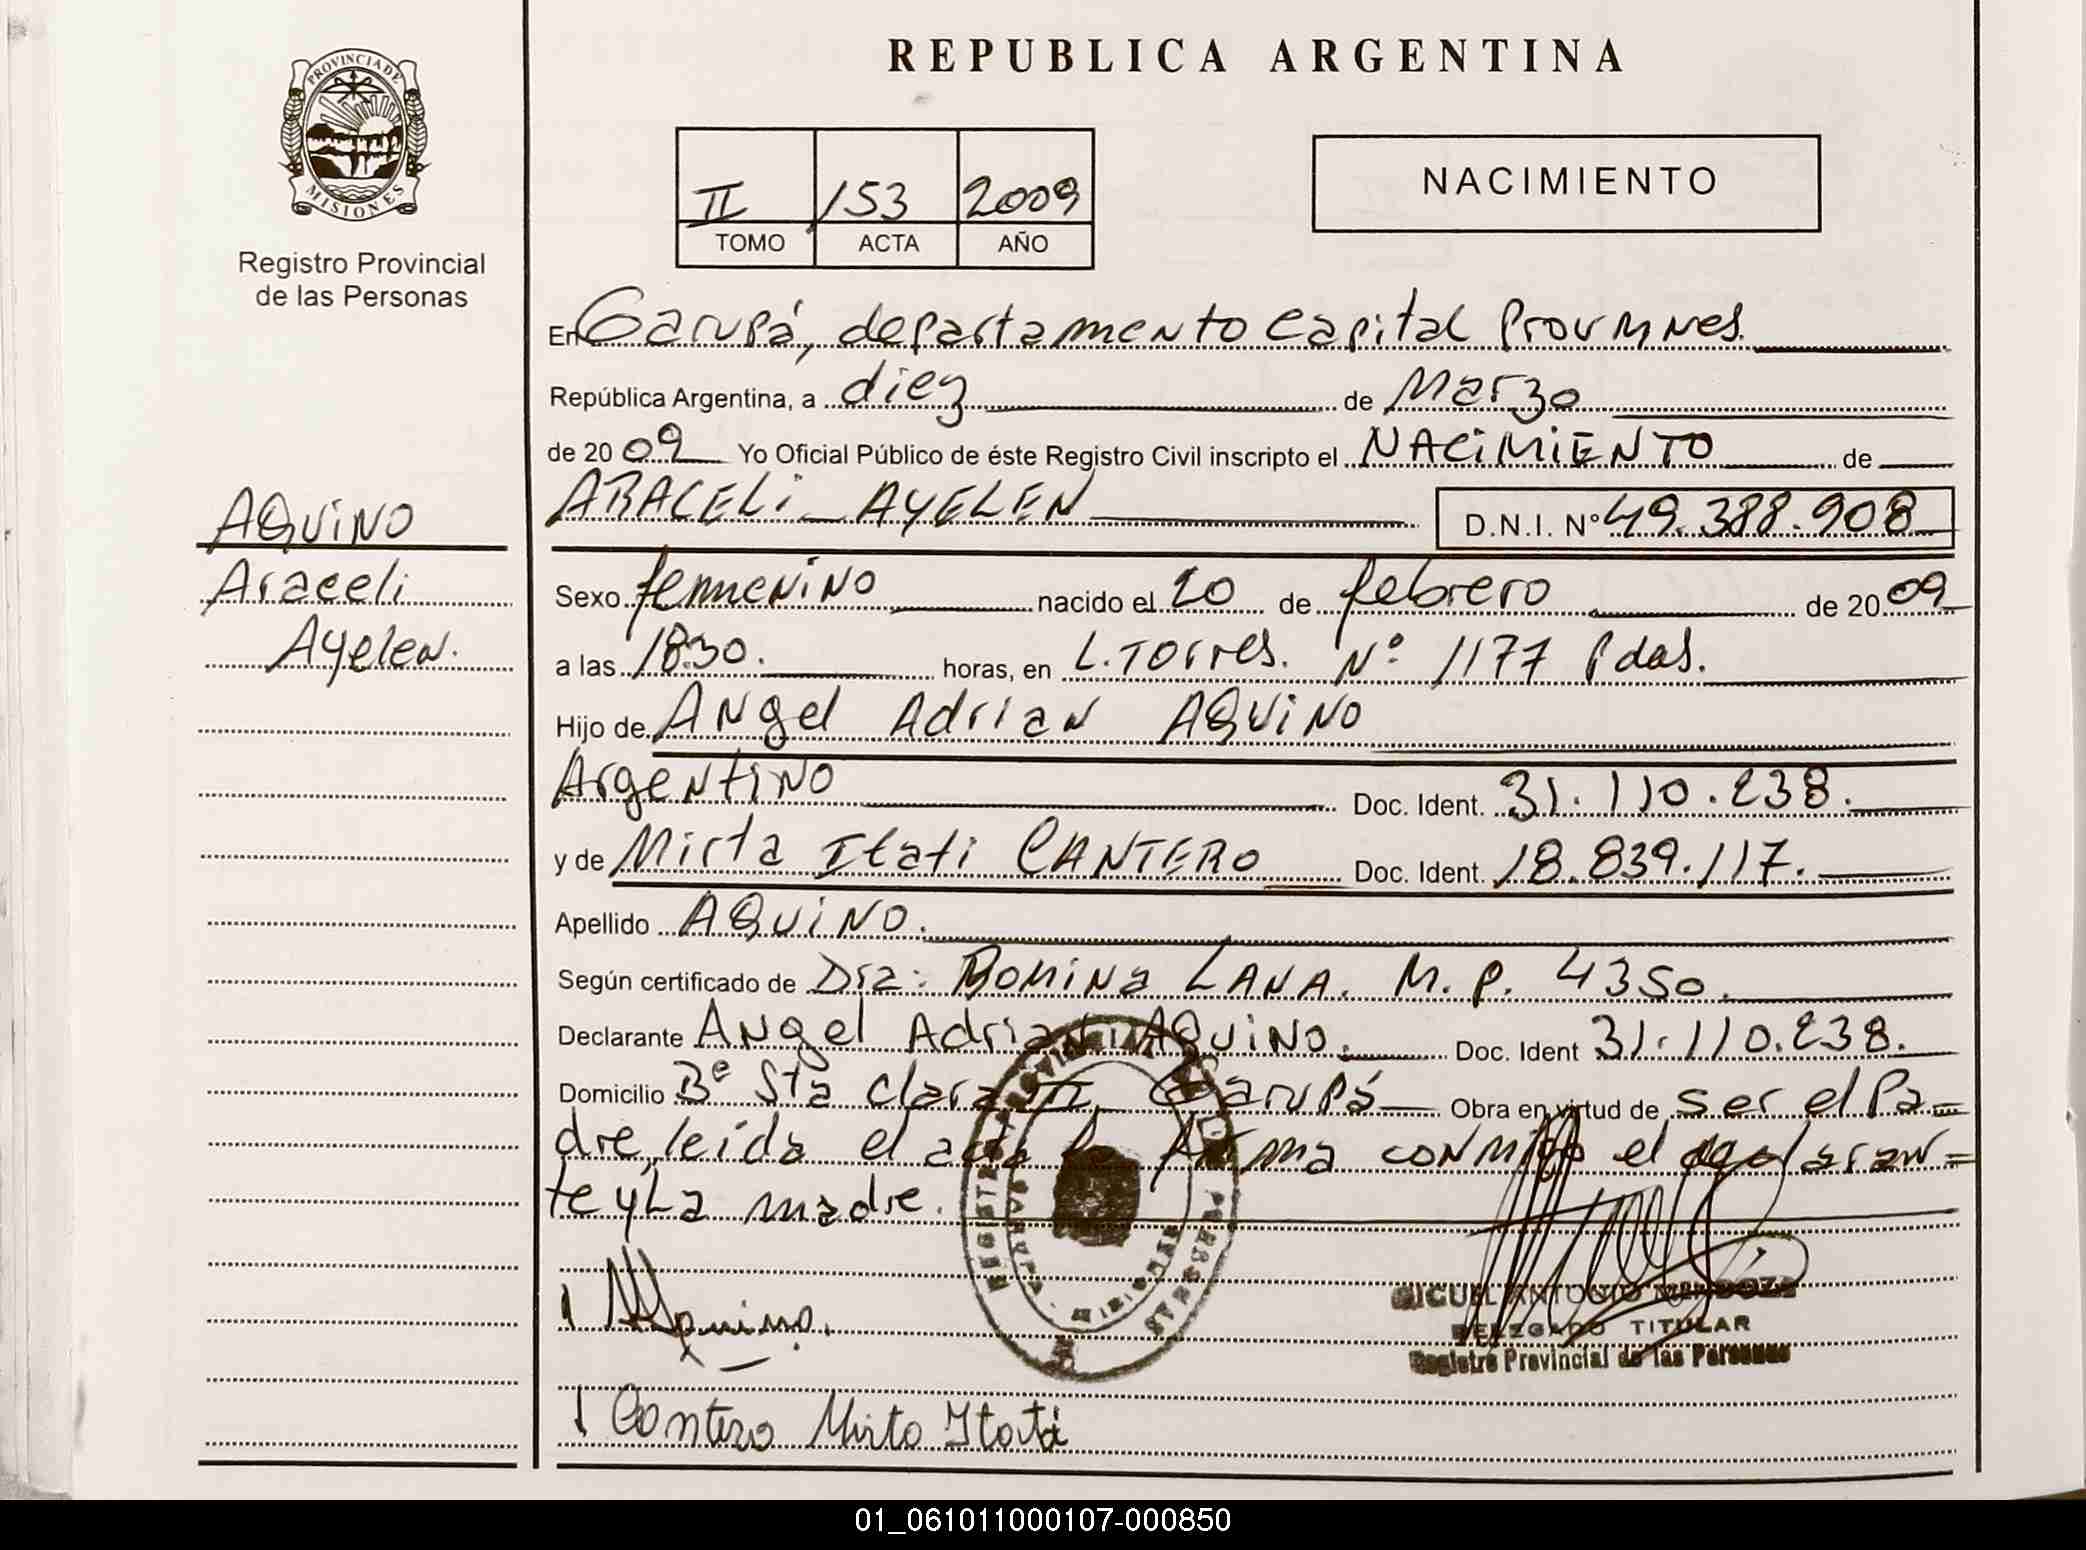 REPUBLICA ARGENTINA
PROVINCIA DE
MISIONES
Registro Provincial
de las Personas
II 153 2009
TOMO ACTA AÑO
NACIMIENTO
En Garupá, departamento Capital Prov Mnes.
República Argentina, a diez de Marzo
de 2009 Yo Oficial Público de éste Registro Civil inscripto el NACIMIENTO de
ARACELI AYELEN D.N.I. Nº 49.388.908
AQUINO
Araceli
Ayelen.
Sexo femenino nacido el 20 de febrero de 2009
a las 18:30. horas, en L. Torres. Nº 1177 Pdas.
Hijo de Angel Adrian AQUINO
Argentino Doc. Ident. 31.110.238.
y de Mirta Itati CANTERO Doc. Ident. 18.839.117.
Apellido AQUINO.
Según certificado de Dra: Romina LANA. M.P. 4350.
Declarante Angel Adrian AQUINO. Doc. Ident 31.110.238.
Domicilio Bº Sta Clara II Garupá Obra en virtud de ser el Pa=
dre, leída el acta la firma conmigo el declaran=
te y La madre.
Aquino.
MIGUEL ANTONIO MENDOZA
DELEGADO TITULAR
Registro Provincial de las Personas
Cantero Mirta Itati
REGISTRO PROVINCIAL DE LAS PERSONAS
GARUPA - MISIONES
01_061011000107-000850